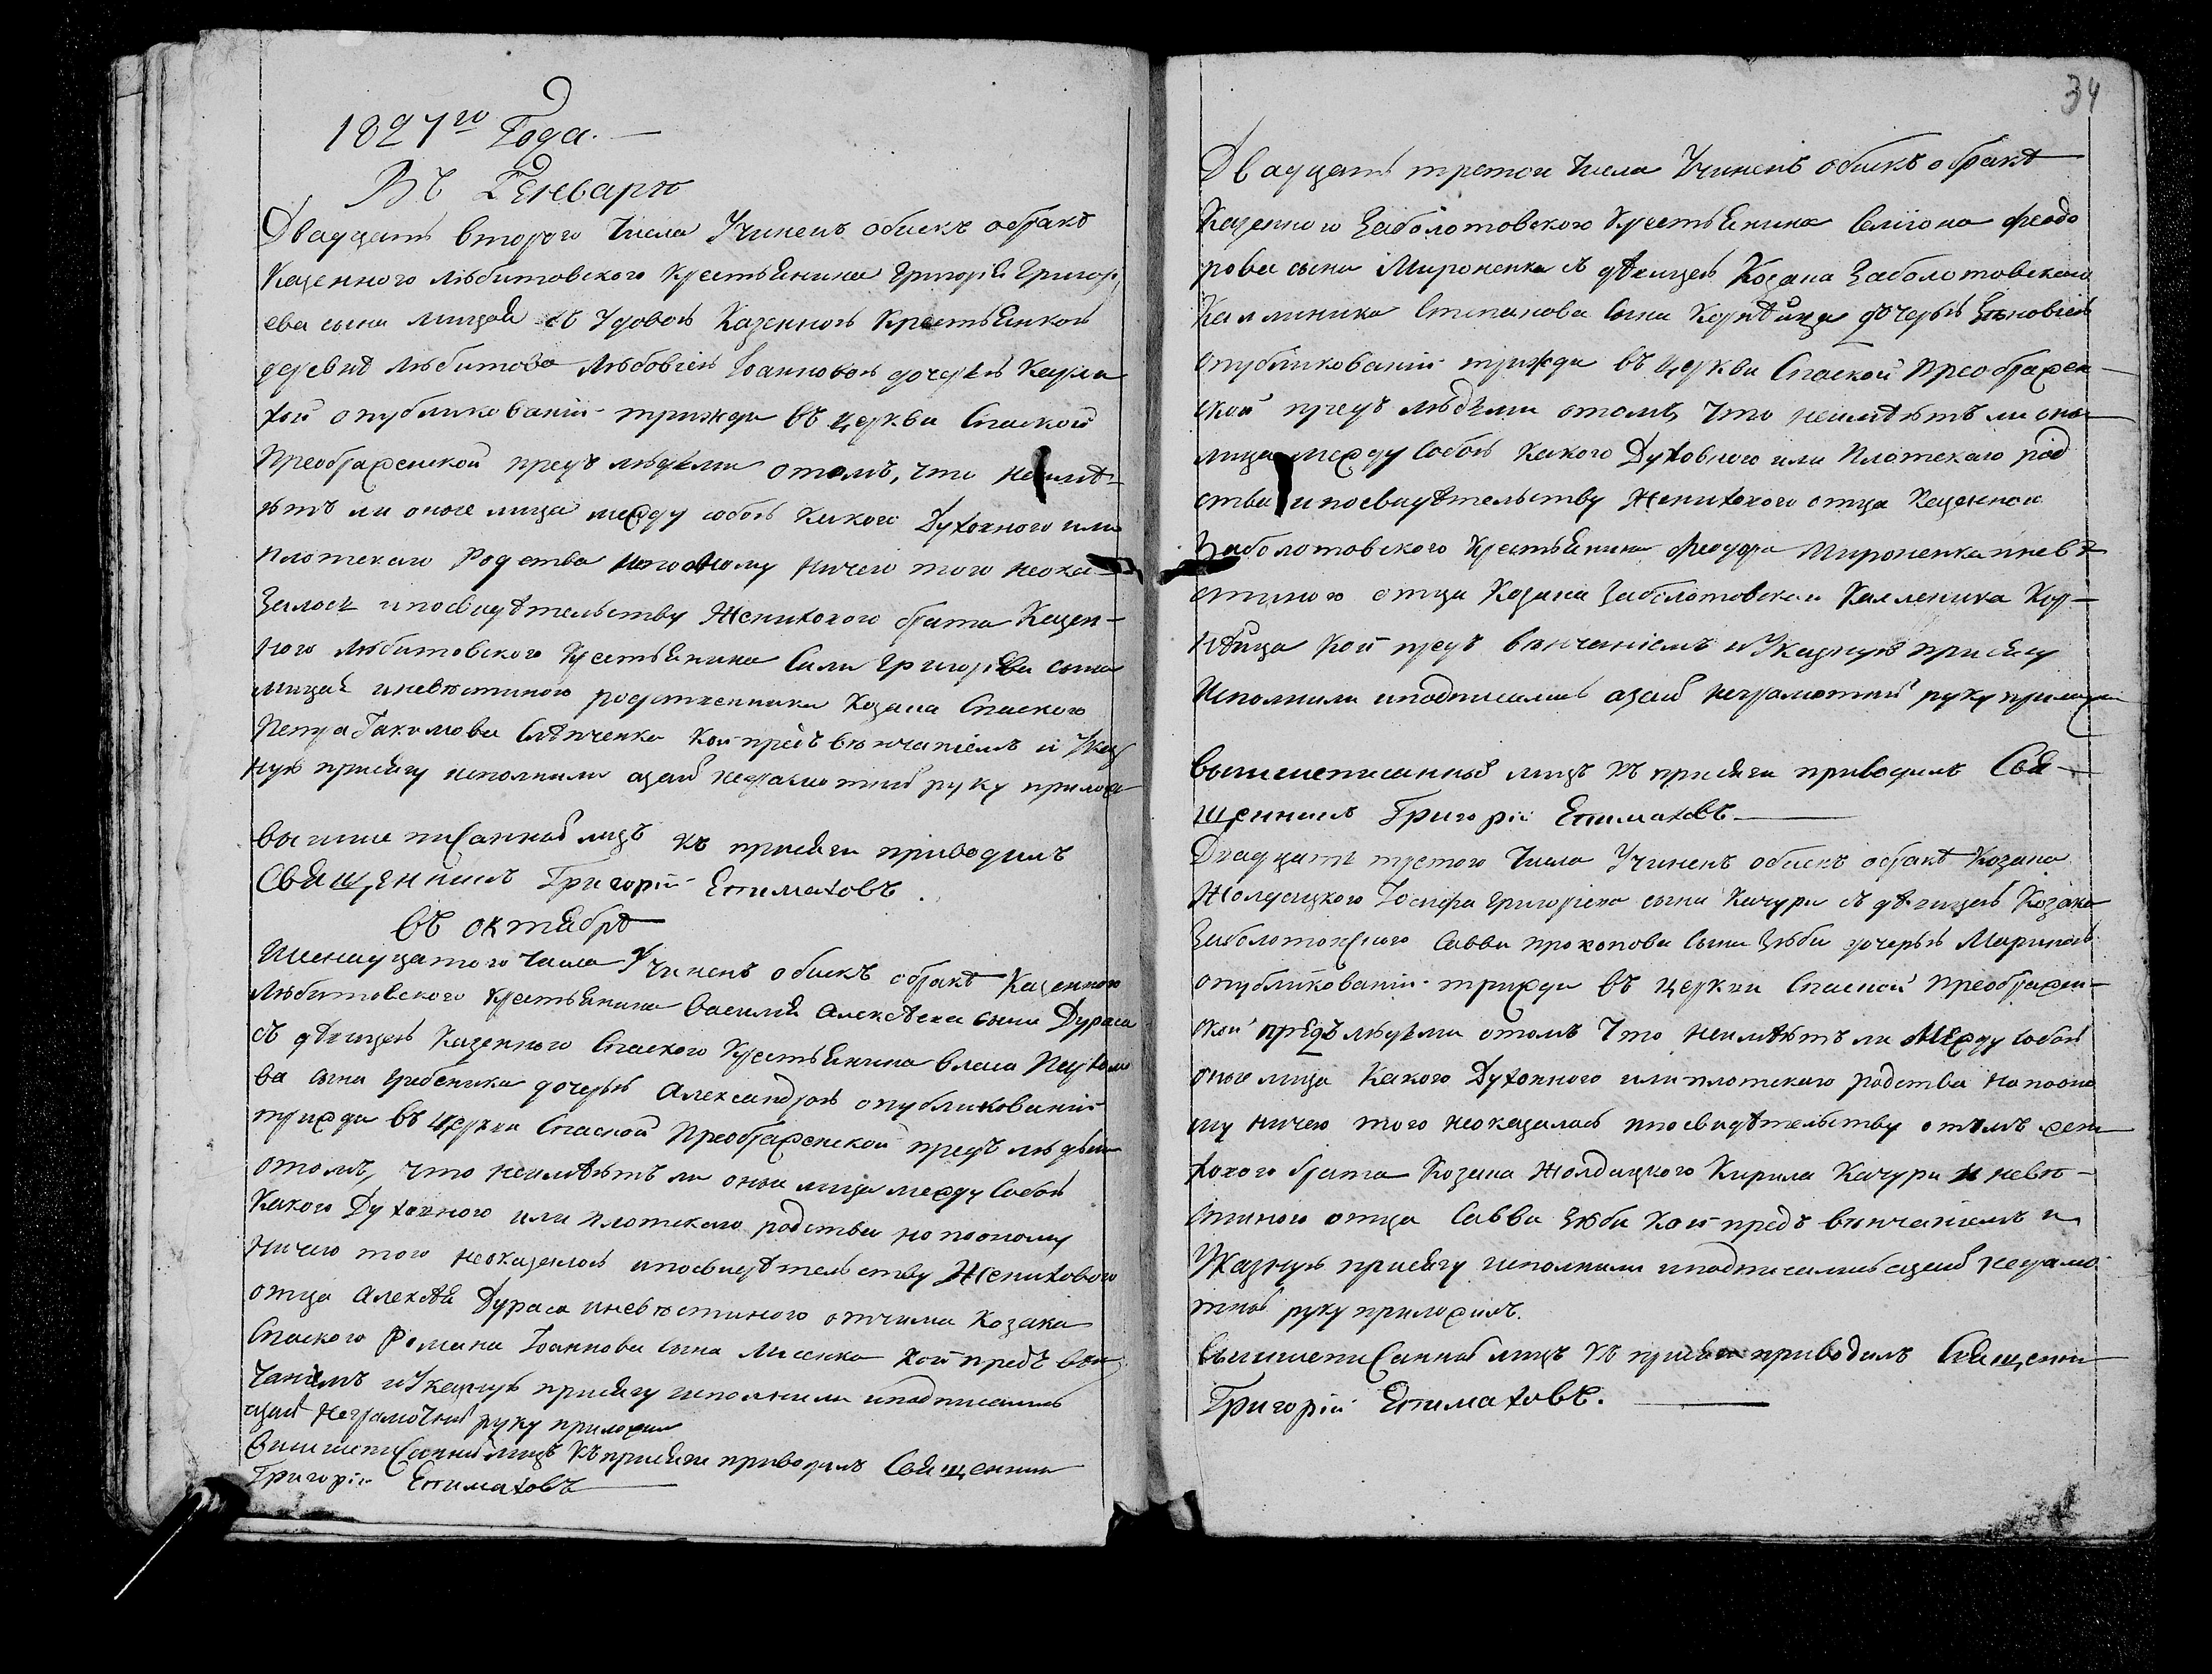 1827го Года.—
Въ Генварѣ
Двадцать второго Числа Учиненъ обискъ обракѣ
Казенного Любитовского Крестьянина Григорія Григорі
ева сына Мицай съ Удовою Казенною Крестьянкою
деревнѣ Любитова Любовією Іоанновою дочерью
хой опубликованіи трижди въ церкви Спаской
Преображенской предъ людьми отомъ, что неимѣ-
ютъ ли оные лица между собою какого Духовного или
плотскаго Родства ничего того неока-
залось ипосвидѣтельству Женихового брата Казен-
ного Любитовского Крестьянина Сили Григоріева сына
Мицая иневѣстиного родственника Козака Спаского
Петра Іакимова Слѣпченка кои предъ вѣнчаніемъ и Указ
ную присягу исполнили азаихъ неграмотнихъ руку прилож
вышше писанныхъ лицъ къ присяги приводилъ
Священникъ Григорій Епимаховъ.
въ октябрѣ
Шеснадцатого Числа Учиненъ обискъ обракѣ Казенного
Любитовского Крестьянина Василія Алексѣева сына Дураса
съ дѣвицею Казенного Спаского Крестьянина Власа
ва сына Гребеника дочерью Александрою опубликованіи
трижди въ Церкви Спаской Преображенской предъ людьми
отомъ, что неимѣютъ ли оныи лица между Собою
Какого Духовного или плотскаго родства но поопому
ничего того неоказалось ипосвидѣтельству Женихового
отца Алексѣя Дураса иневѣстиного отчима Козака
Спаского Романа Іоаннова сына Лисенка кои предъ вѣн
чаніемъ иУказную присягу исполнили иподписались
азаихъ неграмотныхъ руку приложил
Вишшеписанныхъ лицъ Къ присяги приводилъ Священник
Григорій Епимаховъ
34
Двадцать третого Числа Учиненъ обискъ обракѣ
Казенного Заболотовского Крестьянина Симіона Феодо
рова сына Мироненка съ дѣвицею Козака Заболотовского
Каллиника Стипанова Сына дочерью
опубликованіи трижди въ церкви Спаской Преображен-
ской предъ людьми отомъ, что неимѣютъ ли оны
лица между Собою Какого Духовного или Плотскаго род
ства ипосвидѣтельству Женихового отца Казенного
Заболотовского Крестьянина Феодора Мироненка иневѣ
стиного отца Козака Заболотовского Каллиника Кор-
нѣйца Кои предъ вѣнчаніемъ иУказную присягу
Исполнили иподписались азаихъ неграмотних руку приложил
вышшеписанныхъ лицъ къ присяги приводилъ Свя-
щенникъ Григорій Епимаховъ.
Двадцать третого Числа Учиненъ обискъ обракѣ Козака
Жолдацкого Іосифа Григоріева сына Качури съ дѣвицею Козака
Заболотовского Саввы Прокопова Сына Зюби дочерью Мариною
опубликованіи трижди въ церкви Спаской Преображен-
ской предъ людьми отомъ Что неимѣютъ ли между собою
оные лица Какого Духовного или плотскаго родства но поопо
му ничего того неоказалось ипосвидѣтельству отомъ жени
хового брата Козака Жолдацкого Кирила Качури и невѣ-
стиного отца Савва Зюби Кои предъ вѣнчаніемъ и
Указную присягу исполнили иподписались азаихъ неграмо
тных руку приложилъ.
вышшеписанныхъ лицъ къ присяги приводилъ Священни
Григорій Епимаховъ.